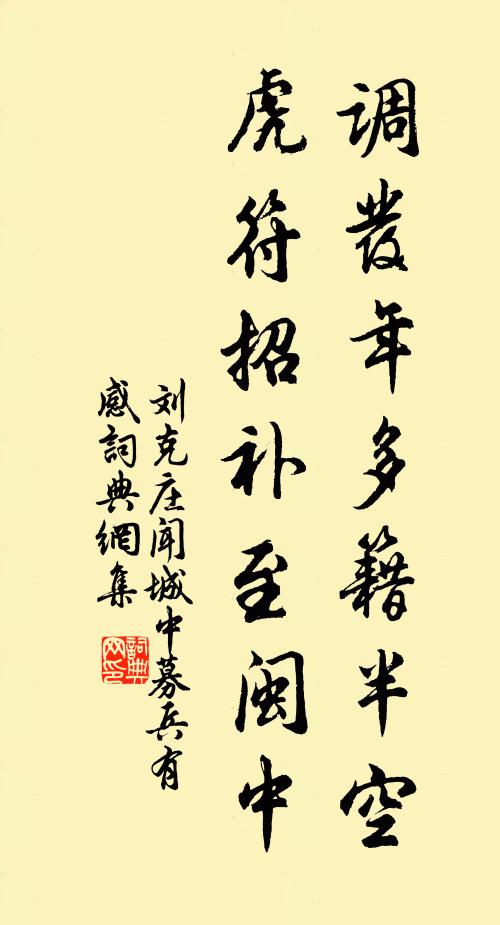 调發年多籍半空
虎符招补至闽中
刘克庄闻城中募兵有
感詞典網集
詞典
网印